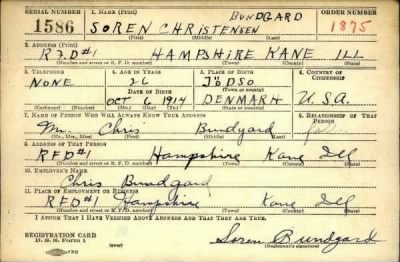 SERIAL NUMBER 1. NAME (Print) ORDER NUMBER
1586 SOREN CHRISTENSEN BUNDGARD 1875
(First) (Middle) (Last)
2. ADDRESS (Print)
R.F.D #1 HAMPSHIRE KANE ILL
(Number and street or R. F. D. number) (Town) (County) (State)
3. TELEPHONE 4. AGE IN YEARS 5. PLACE OF BIRTH 6. COUNTRY OF CITIZENSHIP
NONE 26 JODSO
DATE OF BIRTH (Town or county)
OCT 6 1914 DENMARK U.S.A.
(Exchange) (Number) (Mo.) (Day) (Yr.) (State or country)
7. NAME OF PERSON WHO WILL ALWAYS KNOW YOUR ADDRESS 8. RELATIONSHIP OF THAT PERSON
Mr. Chris Bundgard
(Mr., Mrs., Miss) (First) (Middle) (Last)
9. ADDRESS OF THAT PERSON
RFD #1 Hampshire Kane Ill
(Number and street or R. F. D. number) (Town) (County) (State)
10. EMPLOYER'S NAME
Chris Bundgard
11. PLACE OF EMPLOYMENT OR BUSINESS
RFD #1 Hampshire Kane Ill
(Number and street or R. F. D. number) (Town) (County) (State)
I AFFIRM THAT I HAVE VERIFIED ABOVE ANSWERS AND THAT THEY ARE TRUE.
REGISTRATION CARD
D. S. S. Form 1 Soren Bundgard
(over) (Registrant's signature)